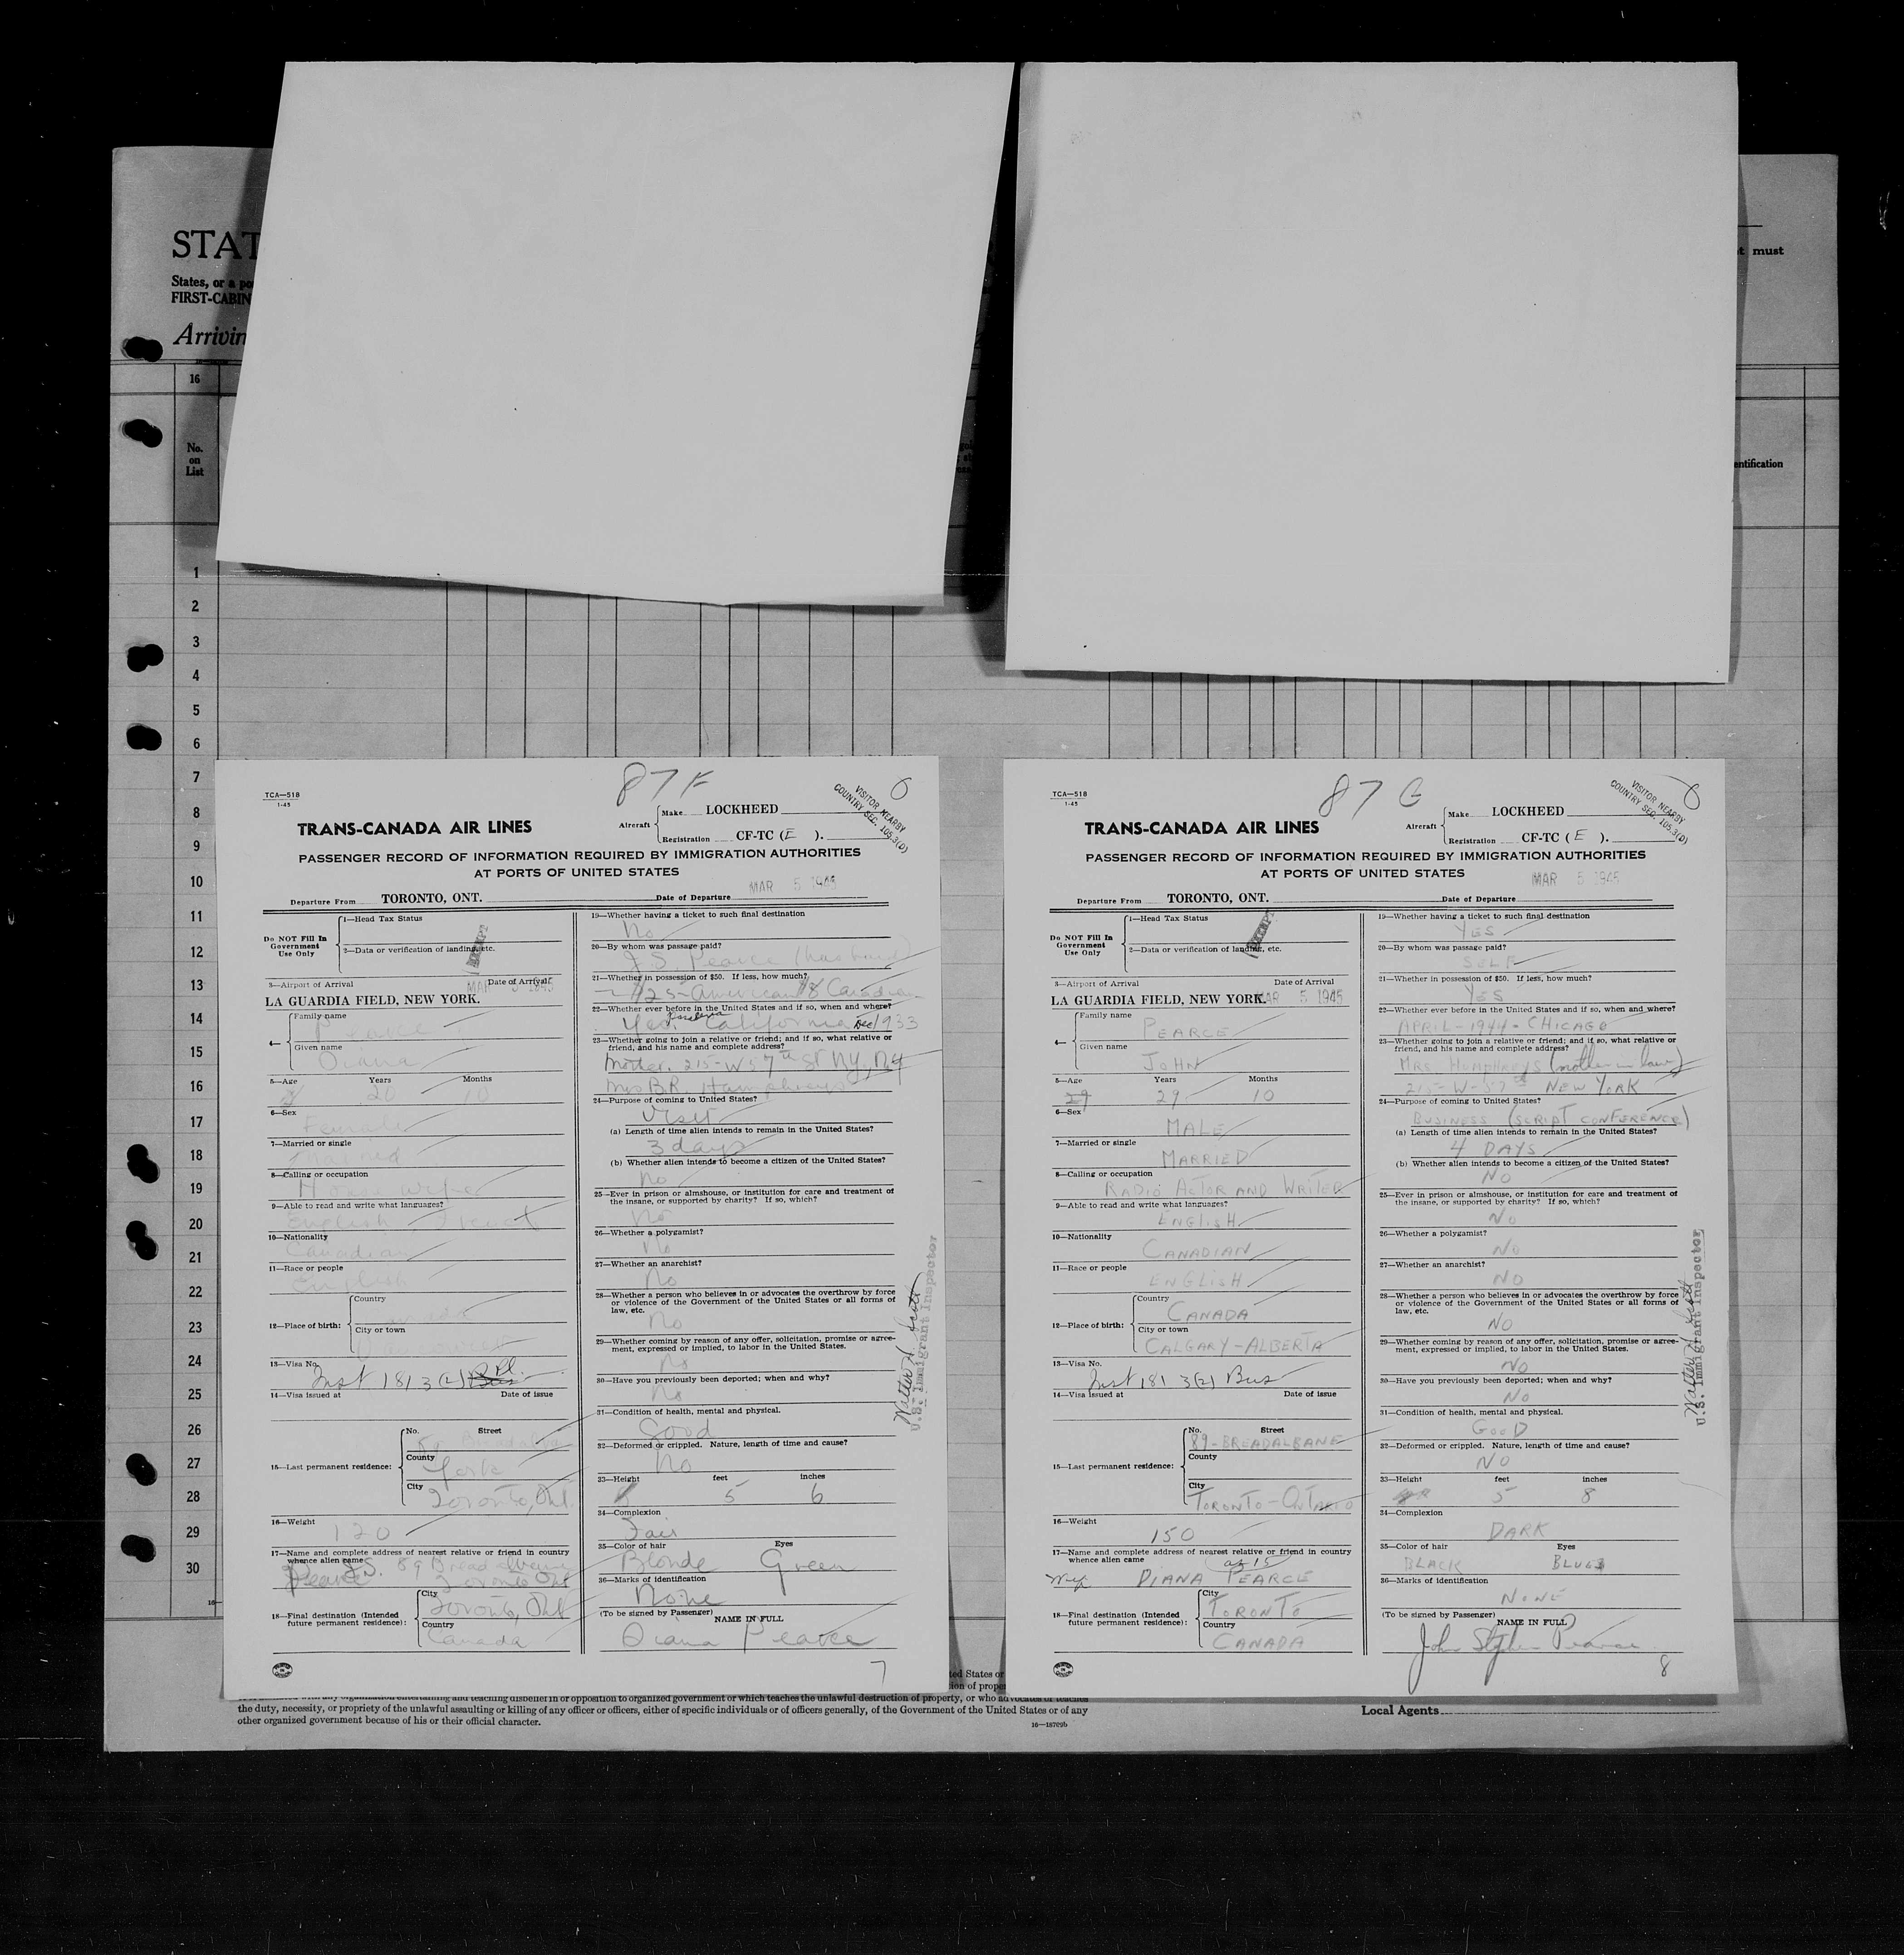 STAT
States, or a po
FIRST-CABIN
Arrivin
t must
16
No.
on
List
entification
1
2
3
4
5
6
7
8
9
10
11
12
13
14
15
16
17
18
19
20
21
22
23
24
25
26
27
28
29
30
87 F
TCA—518
1-45
TRANS-CANADA AIR LINES
Aircraft
Make LOCKHEED
Registration CF-TC ( E ).
VISITOR NEARBY
COUNTRY SEC. 105.3(D)
PASSENGER RECORD OF INFORMATION REQUIRED BY IMMIGRATION AUTHORITIES
AT PORTS OF UNITED STATES
MAR 5 1945
Departure From TORONTO, ONT. Date of Departure
Do NOT Fill In
Government
Use Only
1—Head Tax Status
2—Data or verification of landing, etc.
3—Airport of Arrival Date of Arrival
MAR 5 1945
LA GUARDIA FIELD, NEW YORK.
4—
Family name
Pearce
Given name
Diana
5—Age Years Months
20 10
6—Sex
Female
7—Married or single
Married
8—Calling or occupation
Housewife
9—Able to read and write what languages?
English French
10—Nationality
Canadian
11—Race or people
English
12—Place of birth:
Country
Canada
City or town
13—Visa No.
Inst 181 3(2)
14—Visa issued at Date of issue
15—Last permanent residence:
No. Street
County
York
City
Toronto, Ont.
16—Weight
120
17—Name and complete address of nearest relative or friend in country
whence alien came
Pearce J.S. 89 Breadalbane
Toronto Ont
18—Final destination (Intended
future permanent residence):
City
Toronto, Ont
Country
Canada
19—Whether having a ticket to such final destination
No
20—By whom was passage paid?
J.S. Pearce (husband)
21—Whether in possession of $50. If less, how much?
$25 American $8 Canadian
22—Whether ever before in the United States and if so, when and where?
Yes. California Dec 1933
23—Whether going to join a relative or friend; and if so, what relative or
friend, and his name and complete address?
Mother. 215-W 57th St NY, NY
Mrs B.R. Humphreys
24—Purpose of coming to United States?
Visit
(a) Length of time alien intends to remain in the United States?
3 days
(b) Whether alien intends to become a citizen of the United States?
No
25—Ever in prison or almshouse, or institution for care and treatment of
the insane, or supported by charity? If so, which?
No
26—Whether a polygamist?
No
27—Whether an anarchist?
No
28—Whether a person who believes in or advocates the overthrow by force
or violence of the Government of the United States or all forms of
law, etc.
No
29—Whether coming by reason of any offer, solicitation, promise or agree-
ment, expressed or implied, to labor in the United States.
No
30—Have you previously been deported; when and why?
No
31—Condition of health, mental and physical.
Good
32—Deformed or crippled. Nature, length of time and cause?
No
33—Height feet inches
5 6
34—Complexion
Fair
35—Color of hair Eyes
Blonde Green
36—Marks of identification
None
(To be signed by Passenger)
NAME IN FULL
Diana Pearce
7
Walter A. Scott
U.S. Immigrant Inspector
87 G
TCA—518
1-45
TRANS-CANADA AIR LINES
Aircraft
Make LOCKHEED
Registration CF-TC ( E ).
VISITOR NEARBY
COUNTRY SEC. 105.3(D)
PASSENGER RECORD OF INFORMATION REQUIRED BY IMMIGRATION AUTHORITIES
AT PORTS OF UNITED STATES
MAR 5 1945
Departure From TORONTO, ONT. Date of Departure
Do NOT Fill In
Government
Use Only
1—Head Tax Status
2—Data or verification of landing, etc.
3—Airport of Arrival Date of Arrival
LA GUARDIA FIELD, NEW YORK. MAR 5 1945
4—
Family name
PEARCE
Given name
JOHN
5—Age Years Months
29 29 10
6—Sex
MALE
7—Married or single
MARRIED
8—Calling or occupation
RADIO ACTOR AND WRITER
9—Able to read and write what languages?
ENGLISH
10—Nationality
CANADIAN
11—Race or people
ENGLISH
12—Place of birth:
Country
CANADA
City or town
CALGARY-ALBERTA
13—Visa No.
Inst 181 3(2) Bus
14—Visa issued at Date of issue
15—Last permanent residence:
No. Street
89-BREADALBANE
County
City
TORONTO-ONTARIO
16—Weight
150
17—Name and complete address of nearest relative or friend in country
whence alien came
as 15
Wife DIANA PEARCE
18—Final destination (Intended
future permanent residence):
City
TORONTO
Country
CANADA
19—Whether having a ticket to such final destination
YES
20—By whom was passage paid?
SELF
21—Whether in possession of $50. If less, how much?
YES
22—Whether ever before in the United States and if so, when and where?
APRIL-1944-CHICAGO
23—Whether going to join a relative or friend; and if so, what relative or
friend, and his name and complete address?
MRS. HUMPHREYS (mother in law)
215-W-57th NEW YORK
24—Purpose of coming to United States?
BUSINESS (SCRIPT CONFERENCE)
(a) Length of time alien intends to remain in the United States?
4 DAYS
(b) Whether alien intends to become a citizen of the United States?
NO
25—Ever in prison or almshouse, or institution for care and treatment of
the insane, or supported by charity? If so, which?
NO
26—Whether a polygamist?
NO
27—Whether an anarchist?
NO
28—Whether a person who believes in or advocates the overthrow by force
or violence of the Government of the United States or all forms of
law, etc.
NO
29—Whether coming by reason of any offer, solicitation, promise or agree-
ment, expressed or implied, to labor in the United States.
NO
30—Have you previously been deported; when and why?
NO
31—Condition of health, mental and physical.
GOOD
32—Deformed or crippled. Nature, length of time and cause?
NO
33—Height feet inches
5 8
34—Complexion
DARK
35—Color of hair Eyes
BLACK BLUE
36—Marks of identification
NONE
(To be signed by Passenger)
NAME IN FULL
John Stephen Pearce
8
Walter A. Scott
U.S. Immigrant Inspector
ted States or
tion of prope
with any organization entertaining and teaching disbelief in or opposition to organized government or which teaches the unlawful destruction of property, or who advocates or teaches
the duty, necessity, or propriety of the unlawful assaulting or killing of any officer or officers, either of specific individuals or of officers generally, of the Government of the United States or of any
other organized government because of his or their official character.
16—18709b
Local Agents